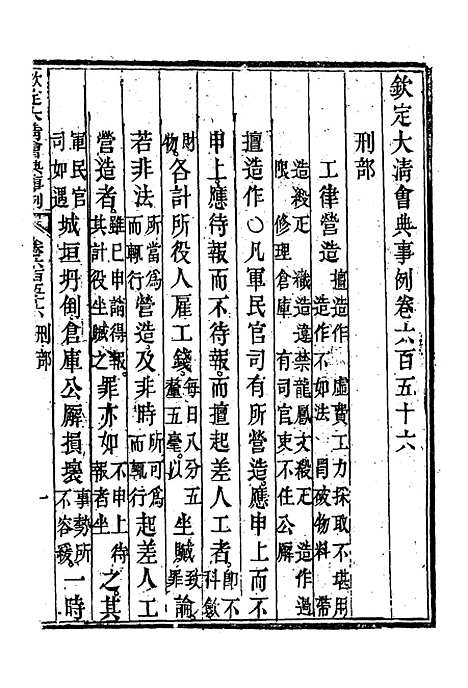 欽定大淸會典事例卷六百五十六
刑部
工律營造 擅造作 虛費工力採取不堪用
造作不如法 冒破物料 帶
造緞疋 織造違禁龍鳳文緞疋 造作過
限 修理倉庫 有司官吏不住公廨
擅造作○凡軍民官司有所營造應申上而不
申上應待報而不待報而擅起差人工者卽不科斂
財物各計所役人雇工錢每日八分五釐五毫以坐贓致罪論
若非法所當爲而輒行營造及非時所可爲而輒行起差人工
營造者雖已申請得報其計役坐贓之罪亦如不申上待報者坐之其
軍民官司如遇城垣坍倒倉庫公廨損壞事勢所不容緩一時
欽定大淸會典事例 卷六百五十六 刑部 一